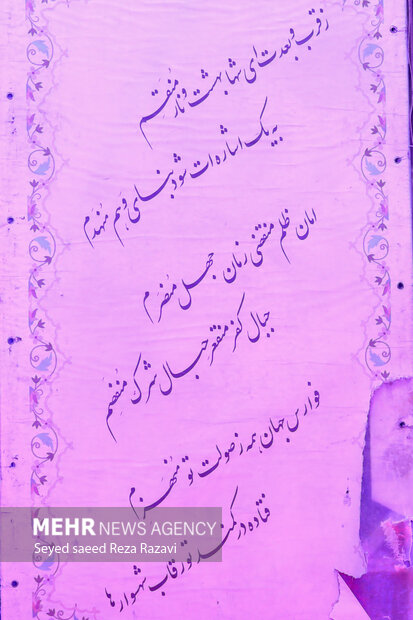 ز قرب و بعدت ای شها بهشت و نار منقسم
به یک اشاره ات شود بنای وهم منهدم
امان ظلم منقضی زمان جهل منضرم
جبال کفر منقعر حبال شرک منفصم
فوارس جهان همه ز صولت تو منهزم
فتاده در کمند تو رقاب شهسوارها
MEHR NEWS AGENCY
Seyed saeed Reza Razavi